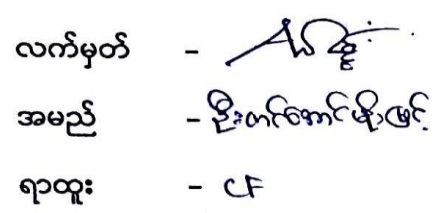 လက်မှတ် -
အမည် - ဦးတင်အောင်မိုးမြင့်
ရာထူး - CF